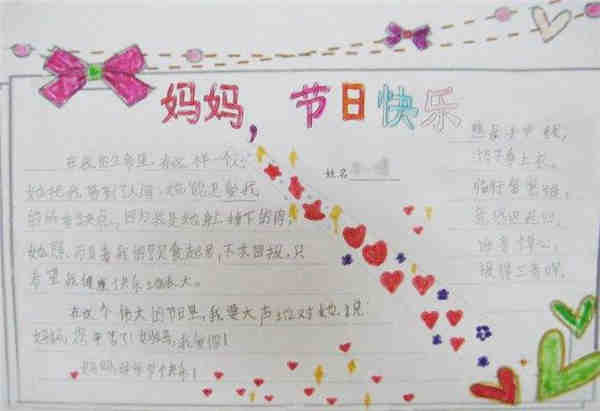 妈妈，节日快乐
姓名
在我的生命里，有这样一个人：
她把我带到了人间，她能包容我
的所有缺点，因为我是她身上掉下的肉，
她照 着我的饮食起居，不求回报，只
希望我健康快乐地成长。
在这个伟大的节日里，我要大声地对她说：
妈妈，您辛苦了！妈妈，我爱你！
妈妈，节日快乐！
慈母手中线，
游子身上衣。
临行密密缝，
意恐迟迟归。
谁言寸草心，
报得三春晖。